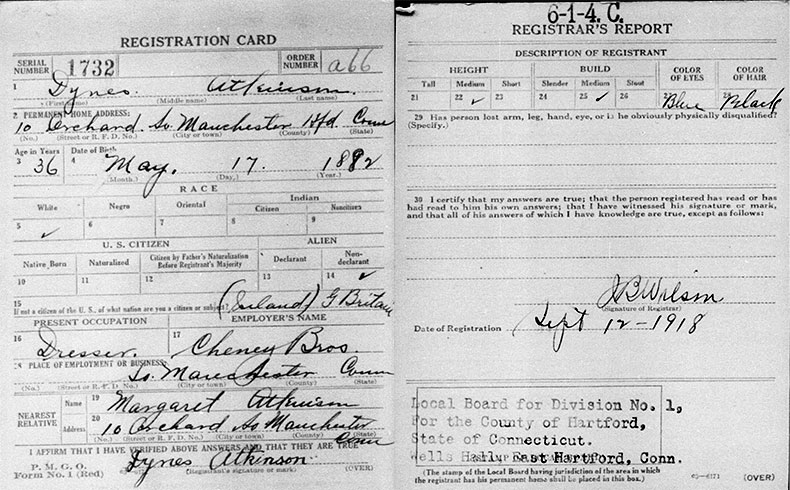 REGISTRATION CARD
SERIAL NUMBER 1732 ORDER NUMBER a66
1 Dynes Atkinson
(First name) (Middle name) (Last name)
2 PERMANENT HOME ADDRESS:
10 Orchard So. Manchester Htfd. Conn
(No.) (Street or R. F. D. No.) (City or town) (County) (State)
Age in Years Date of Birth
3 36 4 May. 17. 1882
(Month.) (Day.) (Year.)
RACE
White Negro Oriental Indian
Citizen Noncitizen
5 ✓ 6 7 8 9
U. S. CITIZEN ALIEN
Native Born Naturalized Citizen by Father's Naturalization Before Registrant's Majority Declarant Non-declarant
10 11 12 13 14 ✓
15 If not a citizen of the U. S., of what nation are you a citizen or subject? (Ireland) G Britain
PRESENT OCCUPATION EMPLOYER'S NAME
16 Dresser. 17 Cheney Bros.
18 PLACE OF EMPLOYMENT OR BUSINESS:
So. Manchester Conn
(No.) (Street or R. F. D. No.) (City or town) (County) (State)
NEAREST RELATIVE Name 19 Margaret Atkinson
Address 20 10 Orchard So Manchester Conn
(No.) (Street or R. F. D. No.) (City or town) (County) (State)
I AFFIRM THAT I HAVE VERIFIED ABOVE ANSWERS AND THAT THEY ARE TRUE
P. M. G. O.
Form No. 1 (Red) Dynes Atkinson
(Registrant's signature or mark) (OVER)
6-1-4. C.
REGISTRAR'S REPORT
DESCRIPTION OF REGISTRANT
HEIGHT BUILD COLOR OF EYES COLOR OF HAIR
Tall Medium Short Slender Medium Stout
21 22 ✓ 23 24 25 ✓ 26 27 Blue 28 Black
29 Has person lost arm, leg, hand, eye, or is he obviously physically disqualified?
(Specify.)
30 I certify that my answers are true; that the person registered has read or has
had read to him his own answers; that I have witnessed his signature or mark,
and that all of his answers of which I have knowledge are true, except as follows:
J B Wilson
(Signature of Registrar)
Date of Registration Sept 12-1918
Local Board for Division No. 1,
For the County of Hartford,
State of Connecticut.
Wells Hall, East Hartford, Conn.
(The stamp of the Local Board having jurisdiction of the area in which
the registrant has his permanent home shall be placed in this box.)
(OVER)